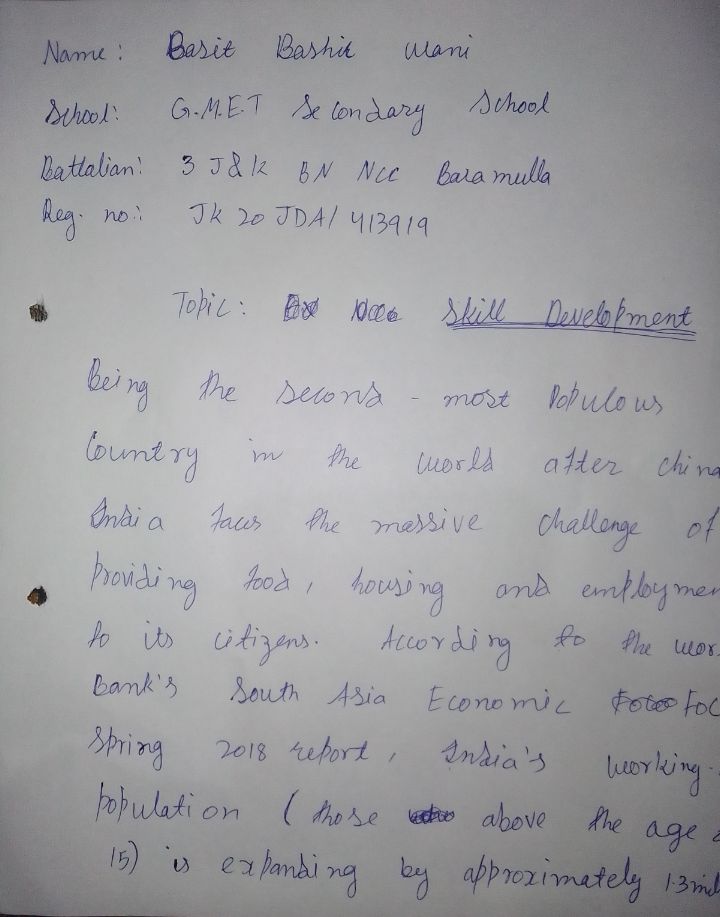 Name: Basit Bashir wani
School: G.M.E.T Secondary School
Battalian: 3 J&K BN NCC Baramulla
Reg. no.: JK 20 JDA/ 413919
Topic: Skill Development
Being the second-most Populous
Country in the world after china
India faces the massive challenge of
Providing food, housing and employmen
to its citizens. According to the wor
Bank's South Asia Economic Foc
Spring 2018 report, India's working-
population (those above the age
15) is expanding by approximately 1.3 mil